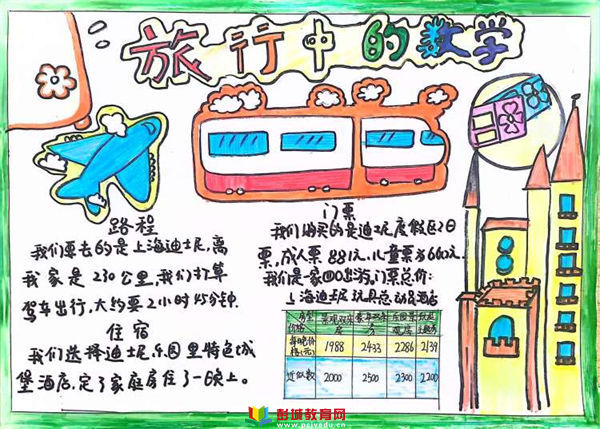 旅行中的数学
路程
我们要去的是上海迪士尼,离
我家是230公里,我们打算
驾车出行,大约要2小时45分钟.
住宿
我们选择迪士尼乐园里特色城
堡酒店,定了家庭房住了一晚上。
门票
我们购买的是迪士尼度假区2日
票,成人票881元,儿童票为660元.
我们是一家四口出游,门票总价:
上海迪士尼玩具总动员酒店
房型
价格
每晚价格(元) 1988 2433 2286 2139
近似数 2000 2500 2300 2200
彭城教育网
www.pcjyedu.cn